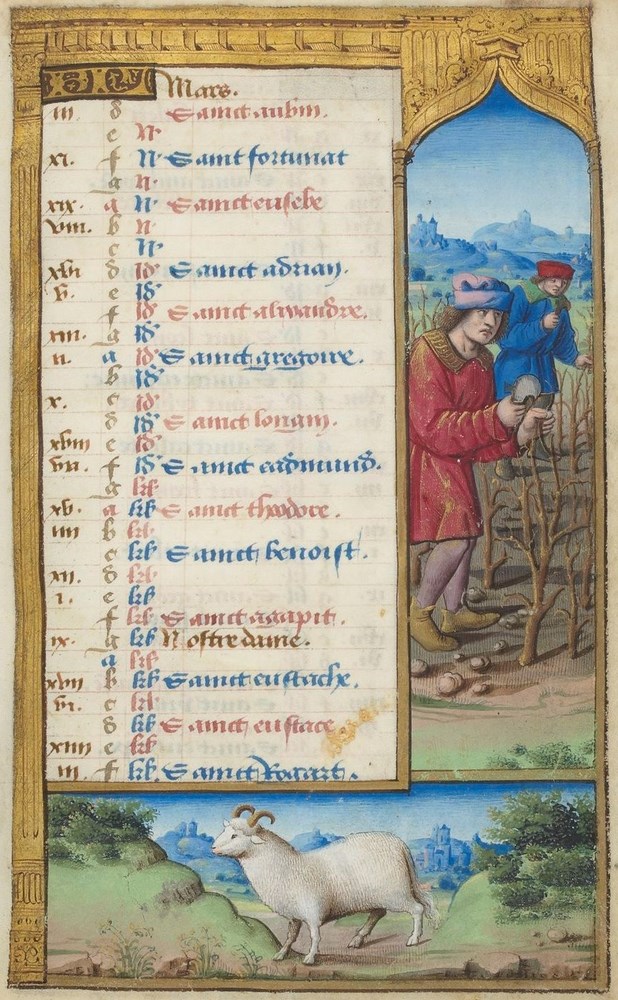 Mars.
iii d Sainct aubin.
e N
xi. f N Sainct fortunat
g N
xix. a N Sainct eusebe
viii. b N
c N
xvi d Id Sainct adrian.
v. e Id
f Id Sainct alixandre.
xiii. g Id
ii. a Id Sainct gregoire.
b Id
x. c Id
d Id Sainct longin.
xviii e Id
vii. f Id Sainct eadmund.
g kl
xv. a kl Sainct theodore.
iiii b kl
c kl Sainct benoist.
xii. d kl
i. e kl
f kl Sainct agapit.
ix. g kl Nostre dame.
a kl
xvii b kl Sainct eustache.
vi. c kl
d kl Sainct eustace
xiiii e kl
iii. f kl.